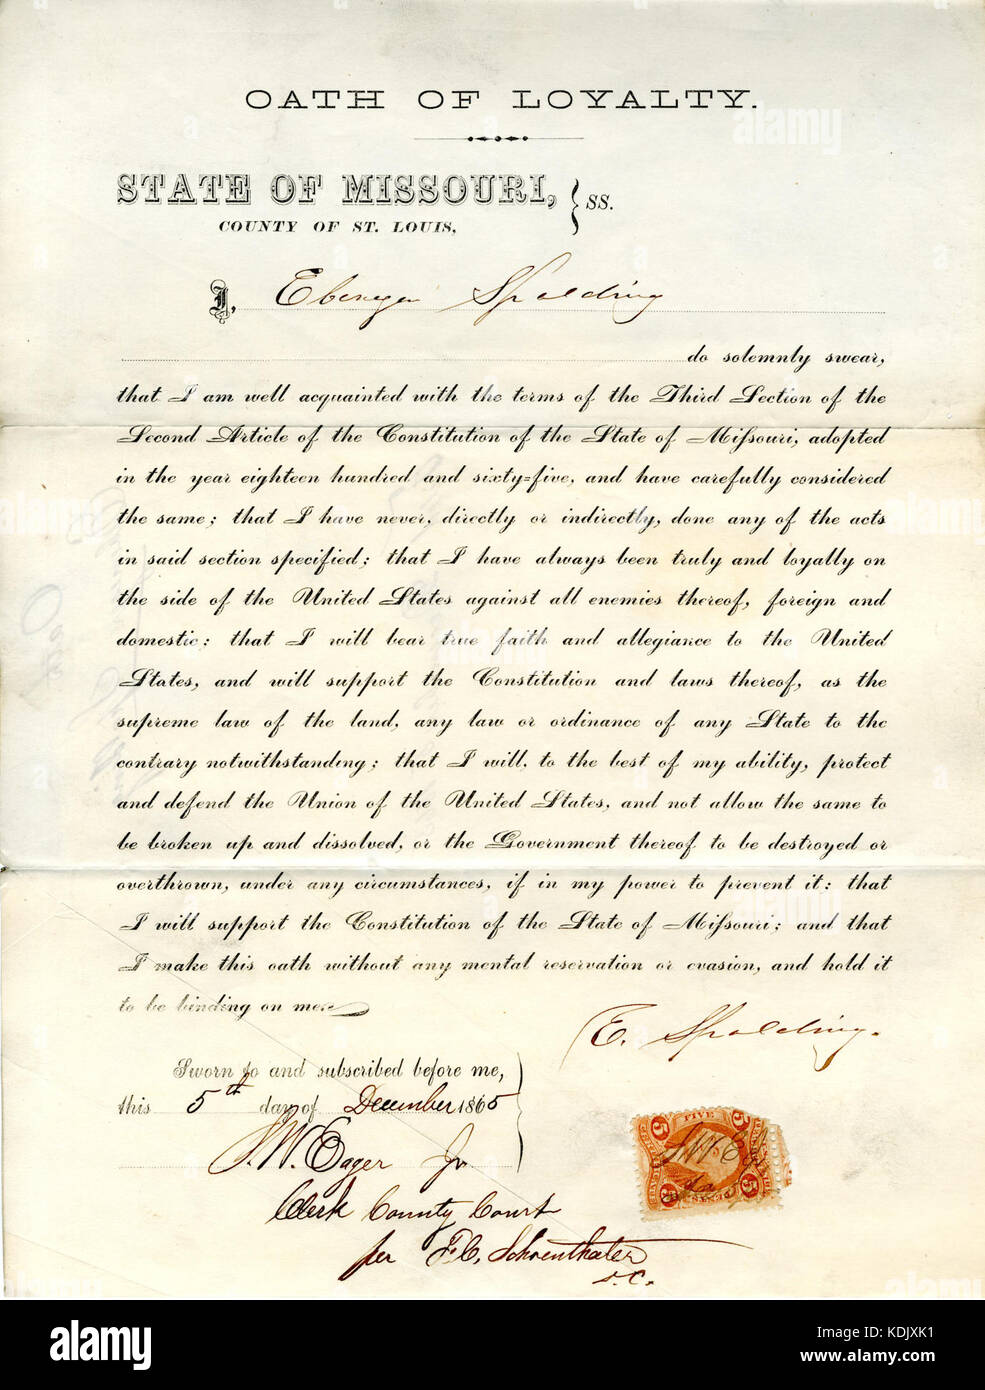 OATH OF LOYALTY.
STATE OF MISSOURI, } SS.
COUNTY OF ST. LOUIS,
I, Ebenezer Spalding
do solemnly swear,
that I am well acquainted with the terms of the Third Section of the
Second Article of the Constitution of the State of Missouri, adopted
in the year eighteen hundred and sixty=five, and have carefully considered
the same; that I have never, directly or indirectly, done any of the acts
in said section specified; that I have always been truly and loyally on
the side of the United States against all enemies thereof, foreign and
domestic: that I will bear true faith and allegiance to the United
States, and will support the Constitution and laws thereof, as the
supreme law of the land, any law or ordinance of any State to the
contrary notwithstanding; that I will, to the best of my ability, protect
and defend the Union of the United States, and not allow the same to
be broken up and dissolved, or the Government thereof to be destroyed or
overthrown, under any circumstances, if in my power to prevent it: that
I will support the Constitution of the State of Missouri; and that
I make this oath without any mental reservation or evasion, and hold it
to be binding on me.
E. Spalding.
Sworn to and subscribed before me,
this 5th day of December 1865
S. W. Eager Jr
Clerk County Court
per F. C. Schoenthaler
D.C.
5 FIVE 5
5 5
alamy
Image ID: KDJXK1
www.alamy.com